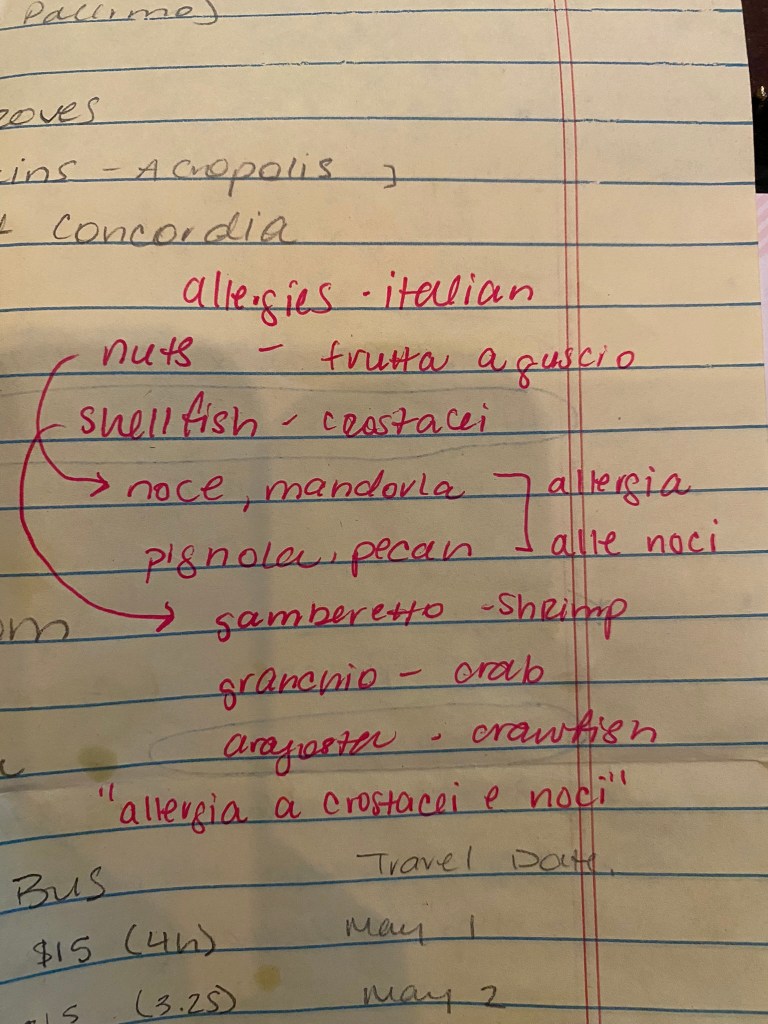 Pallimo)
oves
ins - Acropolis ]
Concordia
allergies - italian
nuts - frutta a guscio
shellfish - crostacei
noce, mandorla ] allergia
pignola, pecan ] alle noci
gamberetto - shrimp
om
granchio - crab
aragosta - crawfish
"allergia a crostacei e noci"
Bus Travel Date.
$15 (4h) May 1
15 (3.25) May 2